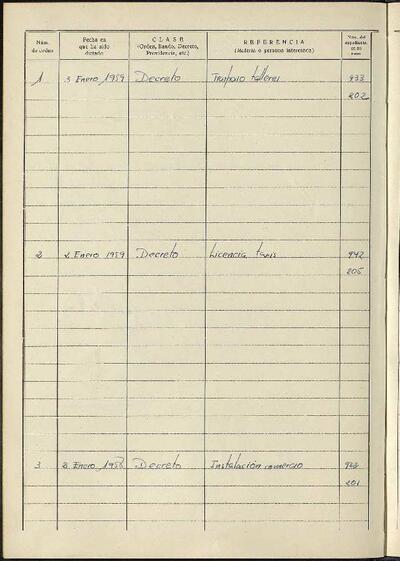 Núm. de orden | Fecha en que ha sido dictado | CLASE (Orden, Bando, Decreto, Providencia, etc.) | REFERENCIA (Materia o persona interesada) | Núm. del expediente
1 | 3 Enero 1959 | Decreto | Trabajo talleres | 933
202
2 | 2 Enero 1959 | Decreto | Licencia taxis | 942
205
3 | Enero | Decreto | Instalación comercio
201